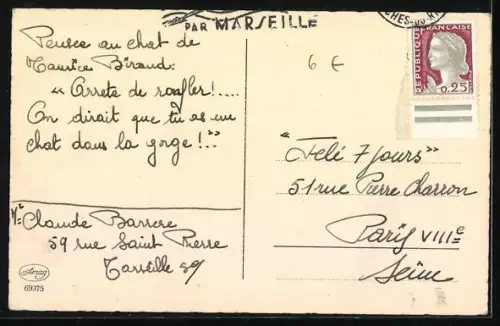 PAR MARSEILLE
CHES-DU-R
RÉPUBLIQUE FRANÇAISE
0,25
6 €
Pensée au chat de
Maurice Biraud:
"Arrête de ronfler!....
On dirait que tu as un
chat dans la gorge!.."
Mme Claude Barrere
59 rue Saint Pierre
Marseille
"Télé 7 Jours"
51 rue Pierre Charron
Paris VIIIe
Seine
Amag
69375